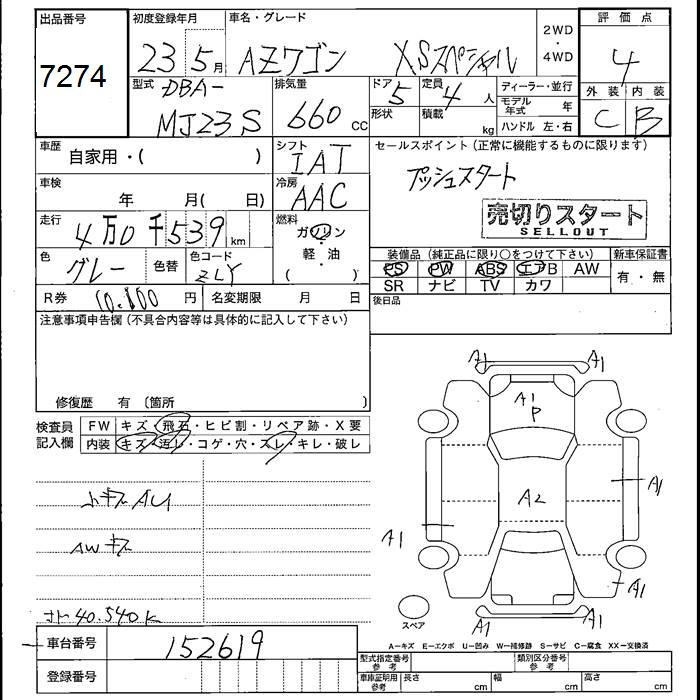 出品番号
7274
初度登録年月
23 5月
車名・グレード
AZワゴン XSスペシャル
2WD
・
4WD
評価点
4
外装 内装
C B
型式
DBA-
MJ23S
排気量
660 cc
ドア
5
定員
4 人
形状
積載
kg
ディーラー・並行
モデル年式 年
ハンドル 左・右
車歴
自家用・( )
シフト
IAT
セールスポイント(正常に機能するものに限ります)
プッシュスタート
売切りスタート
SELLOUT
車検
年 月( 日)
冷房
AAC
走行
4万0千539km
燃料
ガソリン
・
軽・油
( )
色
グレー
色替
色コード
ZLY
装備品(純正品に限り○をつけて下さい)
PS PW ABS エアB AW
SR ナビ TV カワ
新車保証書
有・無
R券 10.100 円
名変期限 月 日
後日品
注意事項申告欄(不具合内容等は具体的に記入して下さい)
修復歴 有 〔箇所 〕
検査員
記入欄
FW キズ・飛石・ヒビ割・リペア跡・X要
内装 キズ・汚レ・コゲ・穴・スレ・キレ・破レ
小キズ AU
AWキズ
オト 40.540K
A1 A1
A1
P
A2
A1
A1
A1
A1 A1
スペア
車台番号
152619
登録番号
A-キズ E-エクボ U-凹み W-補修跡 S-サビ C-腐食 XX-交換済
型式指定番号
参考
類別区分番号
参考
車庫証明用
参考
長さ cm
幅 cm
高さ cm